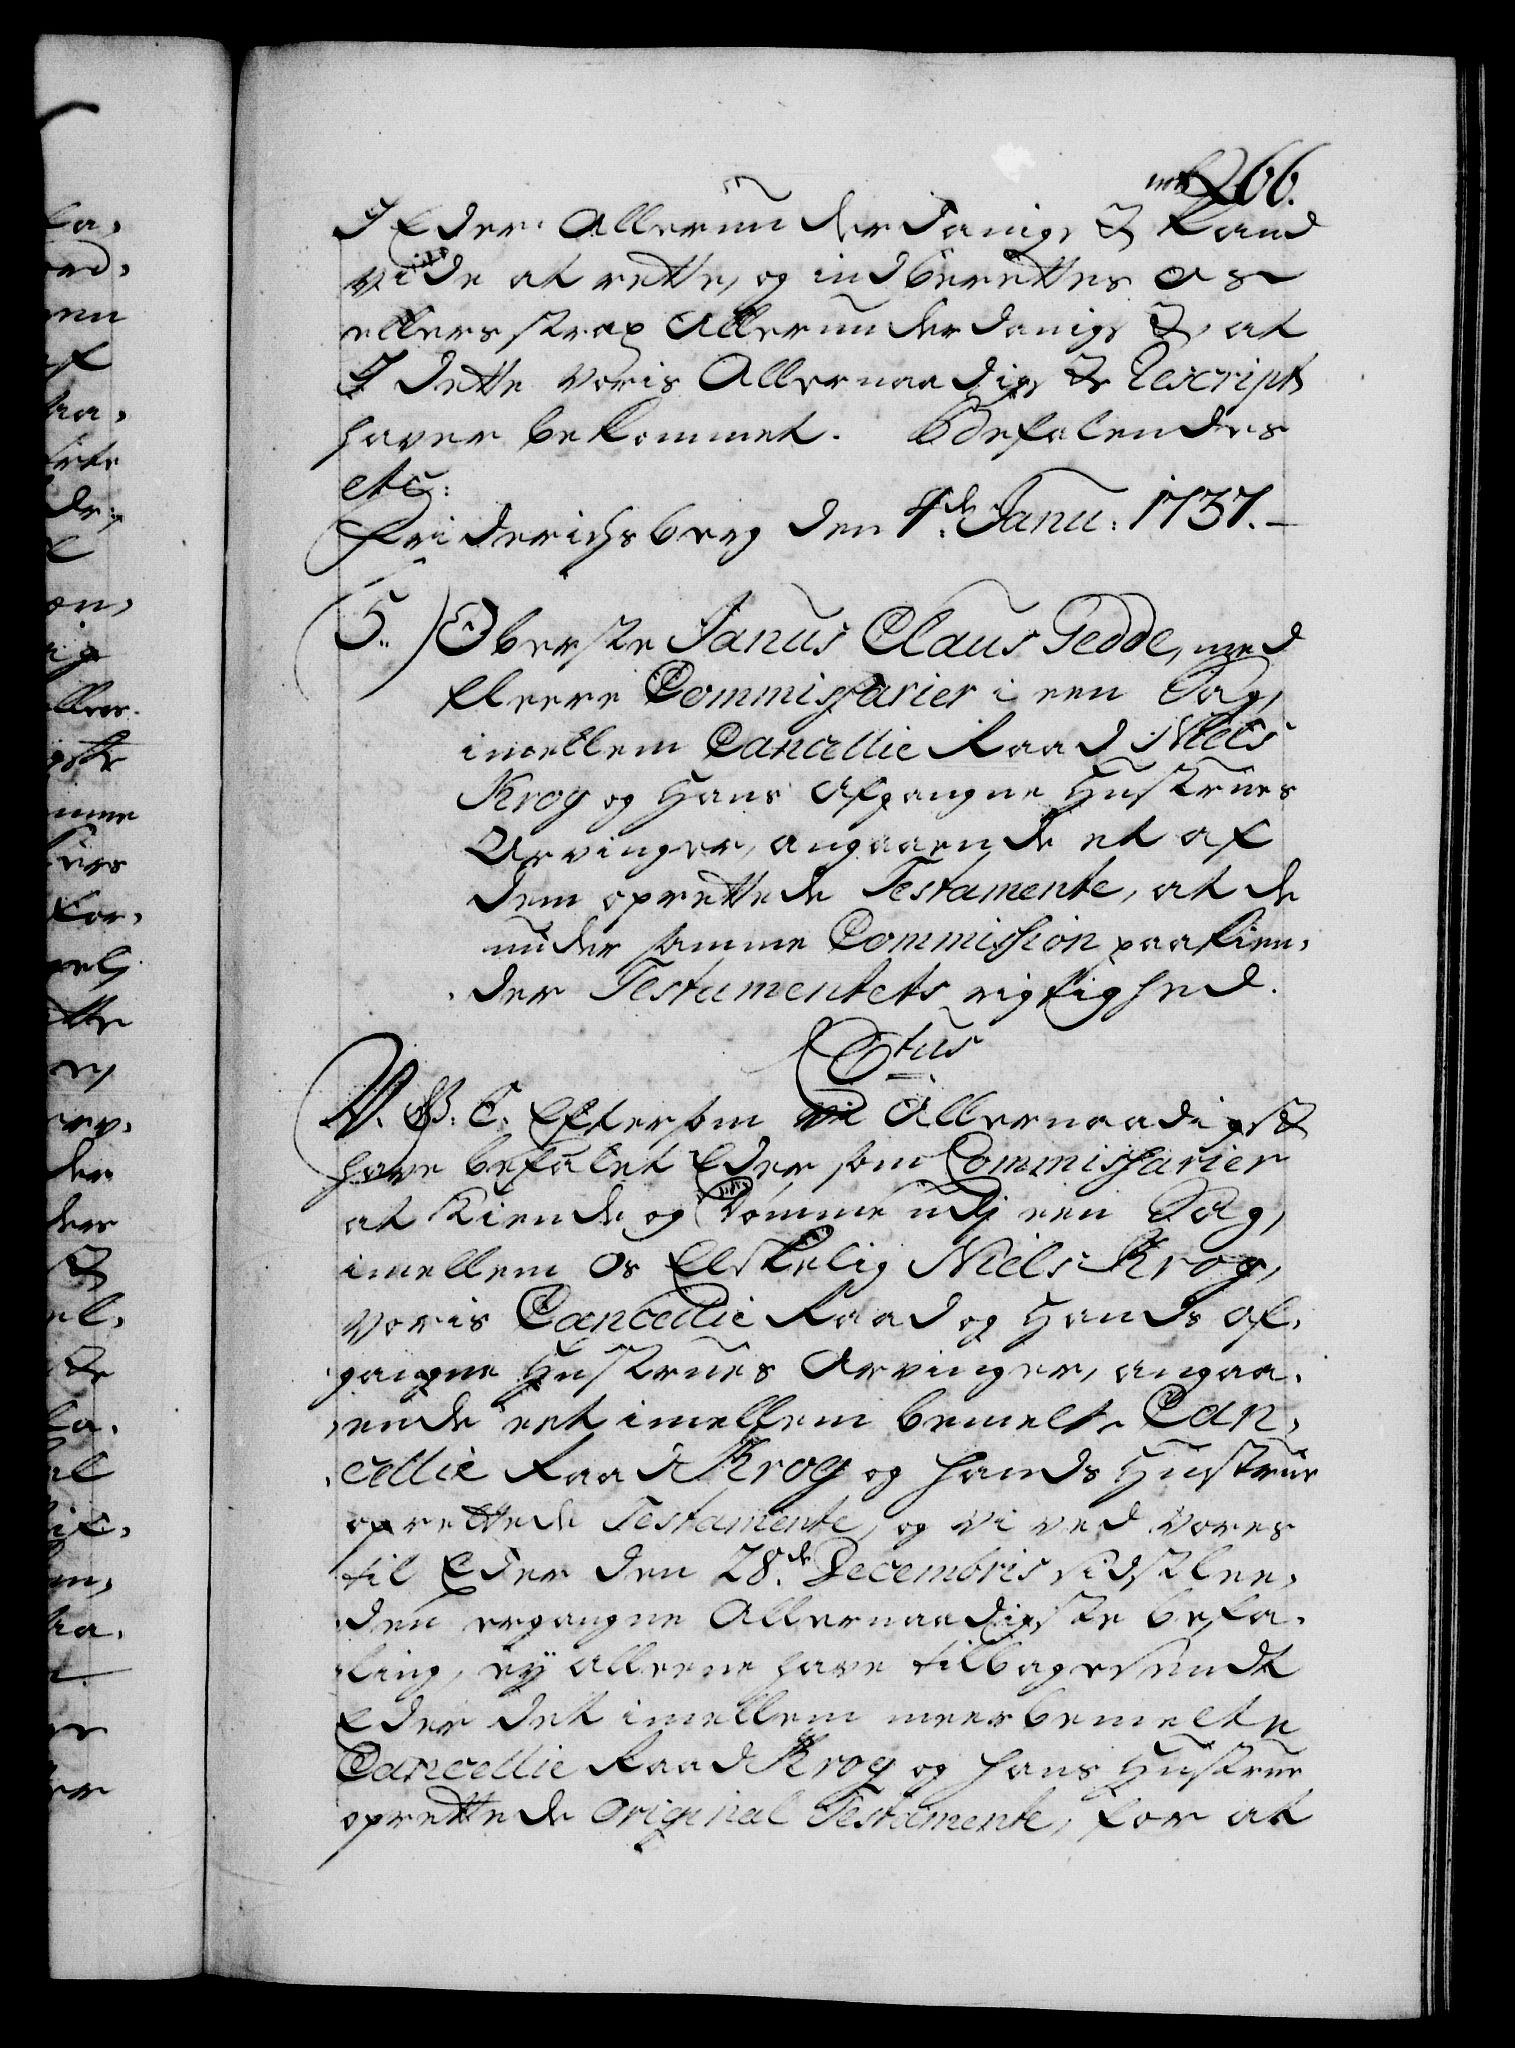 266.
I Eder Allerunderdanigst kand
vide at rette, og indberettes os
ellers strax Allerunderdanigst, at
I dette Voris Allernaadigste Rescript
haver bekommet. Befalendes
etc:
Friderichsberg den 4de Janu: 1737.
5.) Oberste Janus Claus Gedde, med
fleere Commissarier i een Sag,
imellem Cancellie Raad Niels
Krog og Hans Afgangne Hustrues
Arvinger, angaaende et af
dem oprettede Testamente, at de
under samme Commission paakien-
der Testamentets rigtighed.
C6tus
V. G. T. Eftersom vi Allernaadigst
have befalet Eder som Commissarier
at kiende og dømme udj een Sag,
imellem Os Elskelig Niels Krog,
Voris Cancellie Raad og Hands af-
gangne Hustrues Arvinger, angaa-
ende eet imellem bemelte Can-
cellie Raad Krog og hands Hustrue
oprettede Testamente, og vi ved Vores
til Eder den 28de Decembris sidstlee-
den ergangne Allernaadigste befa-
ling, ey alleene have tilbagesendt
Eder det imellem meerbemelte
Cancellie Raad Krog og hans Hustrue
oprettede Original Testamente, for at